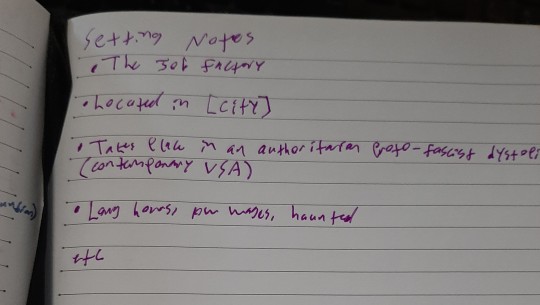 Setting Notes
• The Job factory
• Located in [city]
• Takes place in an authoritarian proto-fascist dystopi
(contemporary USA)
• Long hours, low wages, haunted
etc